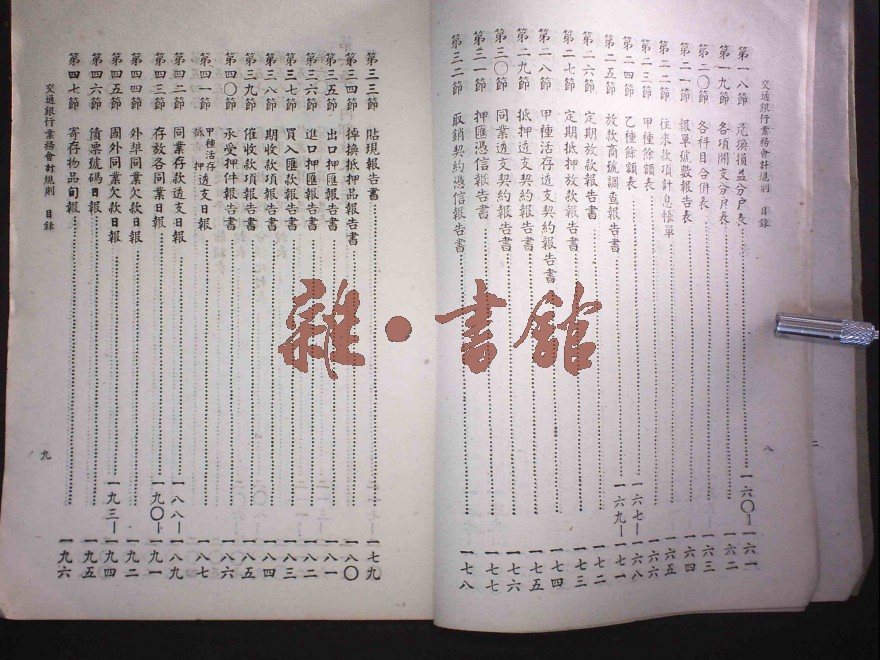 交通銀行業務會計規則 目錄
第一八節 兌換損益分戶表 一六〇—一六一
第一九節 各項開支分戶表 一六二
第二〇節 各科目合併表 一六三
第二一節 報單號數報告表 一六四
第二二節 往來款項計息帳單 一六五
第二三節 甲種餘額表 一六六
第二四節 乙種餘額表 一六七—一六八
第二五節 放款商號調查報告書 一六九—一七一
第二六節 定期放款報告書 一七二
第二七節 定期抵押放款報告書 一七三
第二八節 甲種活存透支契約報告書 一七四
第二九節 抵押透支契約報告書 一七五
第三〇節 同業透支契約報告書 一七六
第三一節 押匯憑信報告書 一七七
第三二節 取銷契約憑信報告書 一七八
八
第三三節 貼現報告書 一七九
第三四節 掉換抵押品報告書 一八〇
第三五節 出口押匯報告書 一八一
第三六節 進口押匯報告書 一八二
第三七節 買入匯款報告書 一八三
第三八節 期收款項報告書 一八四
第三九節 催收款項報告書 一八五
第四〇節 承受押件報告書 一八六
第四一節 甲種活存抵押透支日報 一八七
第四二節 同業存款透支日報 一八八—一八九
第四三節 存放各同業日報 一九〇—一九一
第四四節 外埠同業欠款日報 一九二
第四五節 國外同業欠款日報 一九三—一九四
第四六節 債票號碼日報 一九五
第四七節 寄存物品旬報 一九六
交通銀行業務會計規則 目錄
九
雜·書館